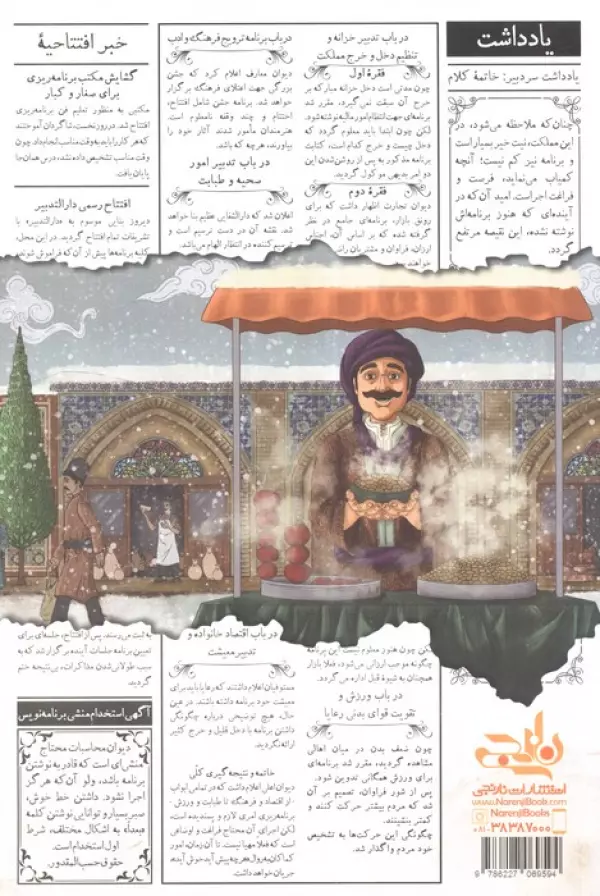 یادداشت
یادداشت سردبیر: خاتمهٔ کلام
چنان‌که ملاحظه می‌شود، در
این مملکت، نیت خیر بسیار است
و برنامه نیز کم نیست؛ آنچه
کمیاب می‌نماید، فرصت و
فراغت اجراست. امید آن‌که در
آینده‌ای که هنوز برنامه‌اش
نوشته نشده، این نقیصه مرتفع
گردد.
در باب تدبیر خزانه و
تنظیم دخل و خرج مملکت
فقرهٔ اول
چون مدتی است دخل خزانه مبارکه بر
خرج آن سبقت نمی‌گیرد، مقرر شد
برنامه‌ای جهت انتظام امور مالیه نوشته شود.
لکن چون ابتدا باید معلوم گردد که
دخل چیست و خرج کدام است، کتابت
برنامه مذکور به پس از روشن‌شدن این
دو امر بدیهی موکول گردید.
فقرهٔ دوم
دیوان تجارت اظهار داشت که برای
رونق بازار، برنامه‌ای جامع در نظر
گرفته شده که بر اساس آن، اجناس
ارزان، فراوان و مشتریان را
خواهند
لکن چون هنوز معلوم نیست این
چگونه موجب ارزانی می‌شود، فعلا بازار
همچنان به شیوهٔ قبل اداره می‌گردد.
در باب ورزش و
تقویت قوای بدنی رعایا
چون ضعف بدن در میان اهالی
مشاهده گردید، مقرر شد برنامه‌ای
برای ورزش همگانی تدوین شود.
پس از شور فراوان، تصمیم بر آن
شد که مردم بیشتر حرکت کنند و
کمتر بنشینند.
چگونگی این حرکت‌ها به تشخیص
خود مردم واگذار شد.
در باب برنامه ترویج فرهنگ و ادب
دیوان معارف اعلام کرد که جشن
بزرگی جهت اعتلای فرهنگ برگزار
خواهد شد. برنامه جشن شامل افتتاح،
اختتام و چند وقفه نامعلوم است.
هنرمندان مأمور شدند آثار خود را
بیاورند، هرچه که باشد.
در باب تدبیر امور
صحیه و طبابت
اعلان شد که دارالشفایی عظیم بنا خواهد
شد. نقشه آن در دست ترسیم است و
ترسیم‌کننده در انتظار الهام می‌باشد.
در باب اقتصاد خانواده و
تدبیر معیشت
مستوفیان اعلام داشتند که رعایا باید برای
معیشت خود برنامه داشته باشند. در عین
حال، هیچ توضیحی درباره چگونگی
داشتن برنامه با دخل قلیل و خرج کثیر
ارائه نگردید.
خاتمه و نتیجه‌گیری کلی
دیوان اعلی اعلام داشت که در تمامی ابواب
-از اقتصاد و فرهنگ تا طبابت و ورزش-
برنامه‌ریزی امری لازم و پسندیده است،
لکن اجرای آن محتاج فراغت و اوضاعی
است که فعلا مهیا نیست. تا آن زمان، امور
کماکان به روال هرچه پیش آید خوش آید،
جریان خواهد داشت.
خبر افتتاحیهٔ
گشایش مکتب برنامه‌ریزی
برای صغار و کبار
مکتبی به منظور تعلیم فن برنامه‌ریزی
افتتاح شد. در روز نخست، شاگردان آموختند
که هر کار را باید به وقت مناسب انجام داد. چون
وقت مناسب تشخیص داده نشد، درس همان‌جا
پایان یافت.
افتتاح رسمی دارالتدبیر
دیروز بنایی موسوم به «دارالتدبیر» با
تشریفات تمام افتتاح گردید. در این محل،
کلیه برنامه‌ها پیش از آن‌که فراموش شوند،
به ثبت می‌رسند. پس از افتتاح، جلسه‌ای برای
تعیین برنامه جلسات آینده برگزار شد که به
سبب طولانی‌شدن مذاکرات، بی‌نتیجه ختم
گردید.
آگهی استخدام منشی برنامه‌نویس
دیوان محاسبات محتاج
منشی‌ای است که قادر به نوشتن
برنامه باشد، ولو آن‌که هرگز
اجرا نشود. داشتن خط خوش،
صبر بسیار و توانایی نوشتن کلمه
به اشکال مختلف، شرط
اول استخدام است.
حقوق حسب‌المقدور.
نارنجی
انتشارات نارنجی
www.NarenjiBook.com
NarenjiBooks
۰۸۱-۳۸۳۸۷۰۰۰
9 786227 089594